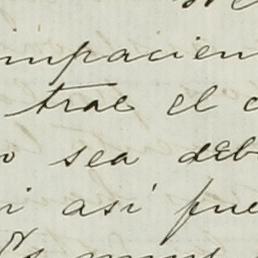 impacien
trae el c
o sea deb
i así fue